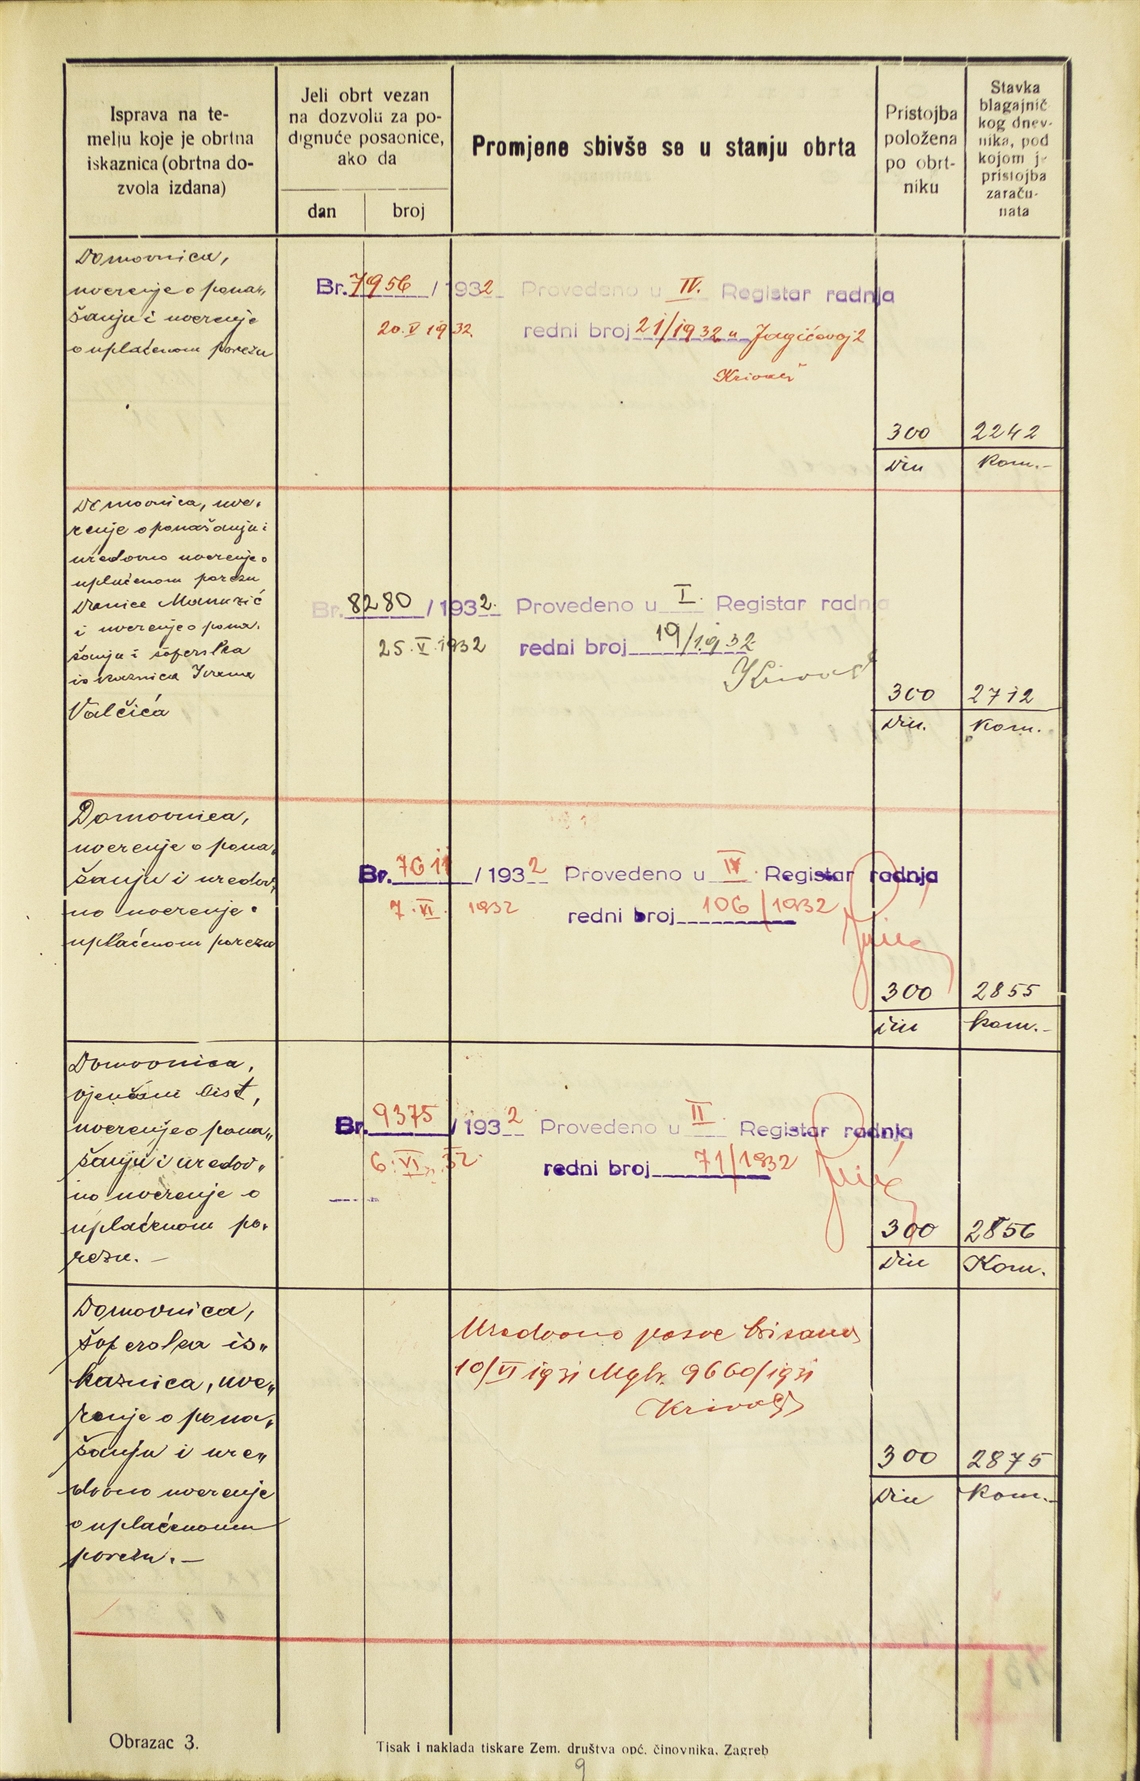 Isprava na te-
melju koje je obrtna
iskaznica (obrtna do-
zvola izdana)
Jeli obrt vezan
na dozvolu za po-
dignuće posaonice,
ako da
dan
broj
Promjene sbivše se u stanju obrta
Pristojba
položena
po obrt-
niku
Stavka
blagajnič
kog dnev-
nika, pod
kojom je
pristojba
zaraču-
nata
Domovnica,
uverenje o pona„
šanju i uverenje
o uplaćenom porezu
Br. 7956 / 1932 Provedeno u IV. Registar radnja
20. V 1932. redni broj 21/1932 u Jagićevoj 2
Krivač
300
2242
Din
Kom.-
Domovnica, uve-
renje o ponašanju i
uredovno uverenje o
uplaćenom porezu
Dranice
i uverenje o pona-
šanju i šoferska
iskaznica Ivana
Valčića
Br. 8280 / 1932. Provedeno u I. Registar radnja
25. V. 1932 redni broj 19/1932
300
2712
Din.
Kom.
Domovnica,
uverenje o pona„
šanju i uredov„
no uverenje o
uplaćenom porezu
Br. 7611 / 1932 Provedeno u IV. Registar radnja
7. VI. 1932 redni broj 106/1932
300
2855
Din
Kom.-
Domovnica,
vjenčani list,
uverenje o pona„
šanju i uredov„
no uverenje o
uplaćenom po„
rezu. —
Br. 9375 / 1932 Provedeno u II Registar radnja
6. VI. 32. redni broj 71/1932
300
2856
Din
Kom.
Domovnica,
šoferska is„
kaznica, uve„
renje o pona„
šanju i ure„
dovno uverenje
o uplaćenom
porezu. —
Uredovno posve brisano
10/VI 1931 Mgbr. 9660/1931
300
2875
Din
Kom.-
Obrazac 3.
Tisak i naklada tiskare Zem. društva opć. činovnika. Zagreb
9